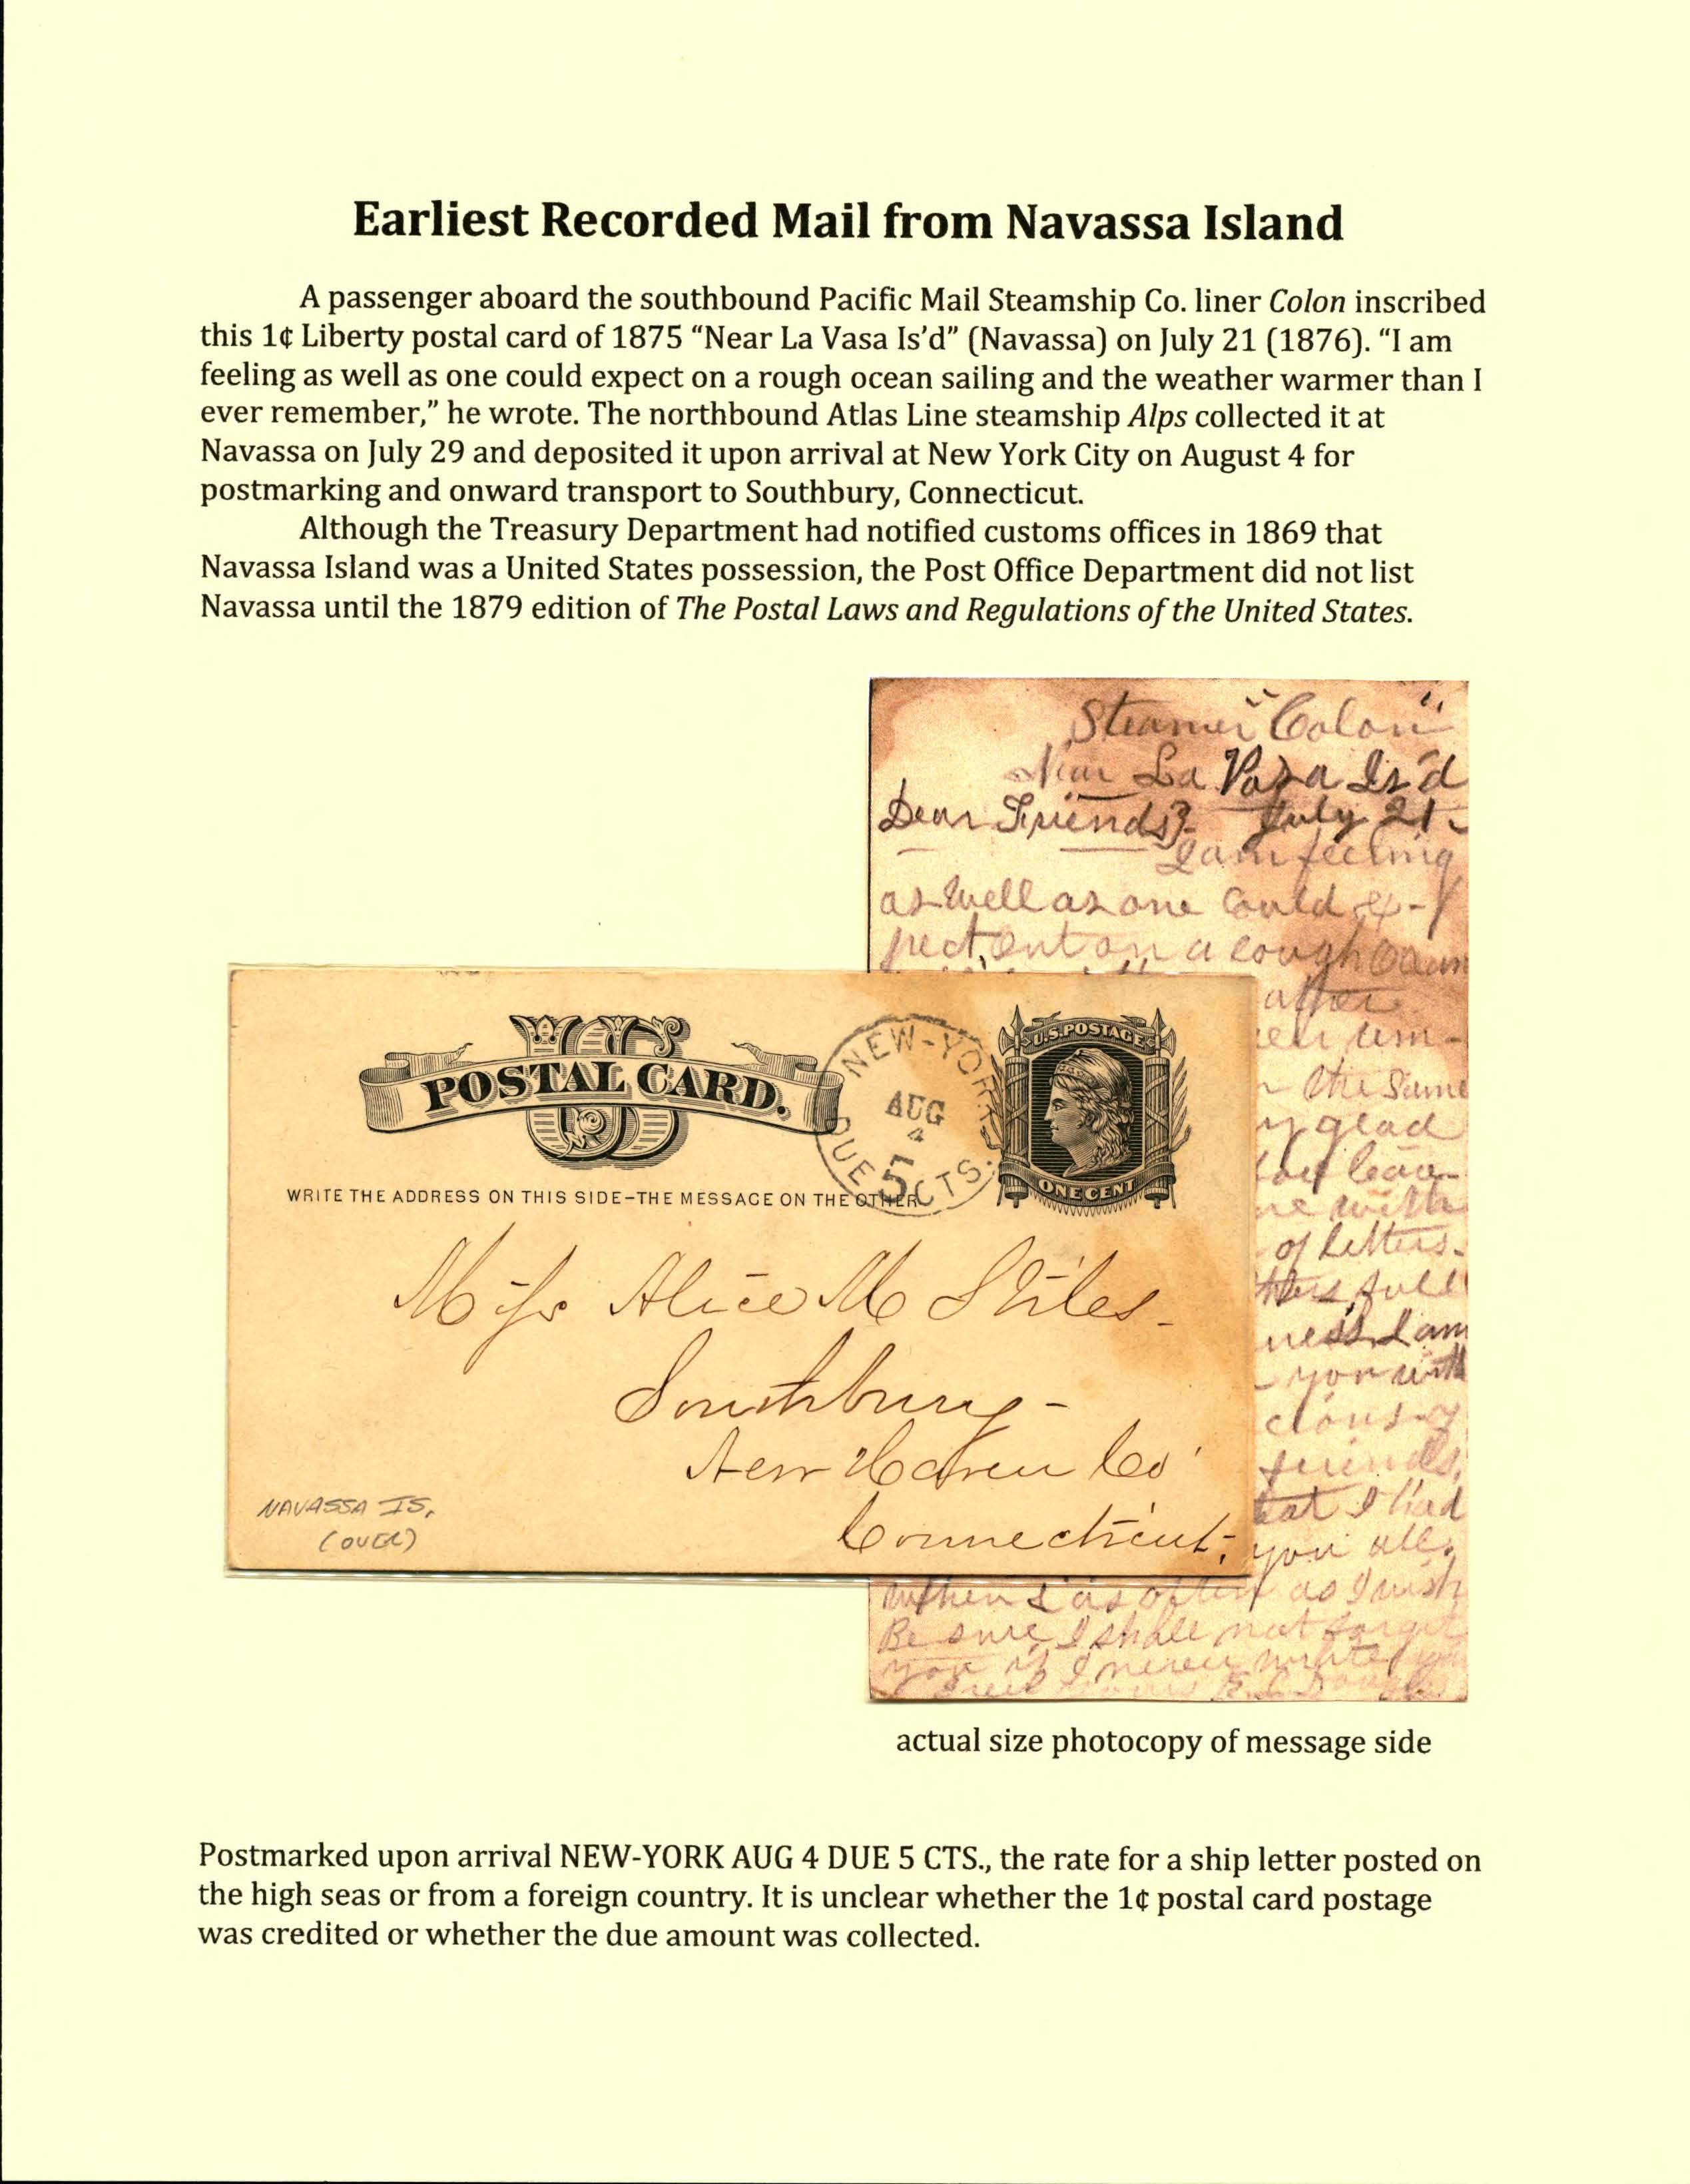 Earliest Recorded Mail from Navassa Island
A passenger aboard the southbound Pacific Mail Steamship Co. liner Colon inscribed
this 1¢ Liberty postal card of 1875 “Near La Vasa Is’d” (Navassa) on July 21 (1876). “I am
feeling as well as one could expect on a rough ocean sailing and the weather warmer than I
ever remember,” he wrote. The northbound Atlas Line steamship Alps collected it at
Navassa on July 29 and deposited it upon arrival at New York City on August 4 for
postmarking and onward transport to Southbury, Connecticut.
Although the Treasury Department had notified customs offices in 1869 that
Navassa Island was a United States possession, the Post Office Department did not list
Navassa until the 1879 edition of The Postal Laws and Regulations of the United States.
Steamer "Colon"
Near La Vasa Is'd
Dear Friends July 21
I am feeling
as well as one could ex-
pect out on a rough Ocean
the same
glad
of letters.
full
I am
you with
friends,
that I had
you all.
as often as I wish
Be sure I shall not forget
you if I never write you
US
POSTAL CARD.
WRITE THE ADDRESS ON THIS SIDE–THE MESSAGE ON THE OTHER
NEW-YORK
AUG
4
DUE 5 CTS.
U.S. POSTAGE
ONE CENT
Miss Alice M Stiles
Southbury-
New Haven Co
Connecticut.
NAVASSA IS.
(OVER)
actual size photocopy of message side
Postmarked upon arrival NEW-YORK AUG 4 DUE 5 CTS., the rate for a ship letter posted on
the high seas or from a foreign country. It is unclear whether the 1¢ postal card postage
was credited or whether the due amount was collected.